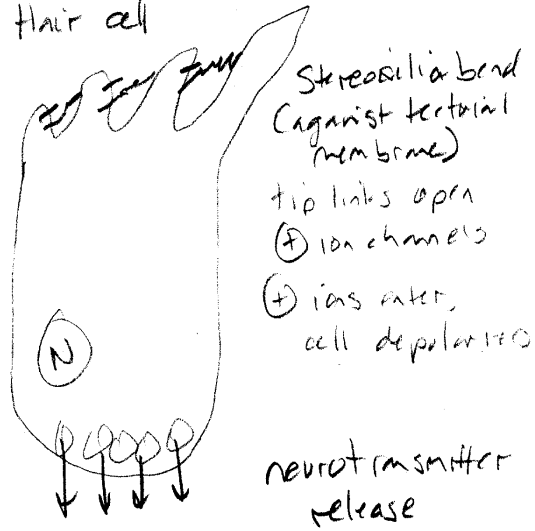 Hair cell
Stereosilia bend
(aganist tectorial
membrane)
tip links open
+ ion channels
+ ions enter,
cell depolarizes
N
neurotransmitter
release